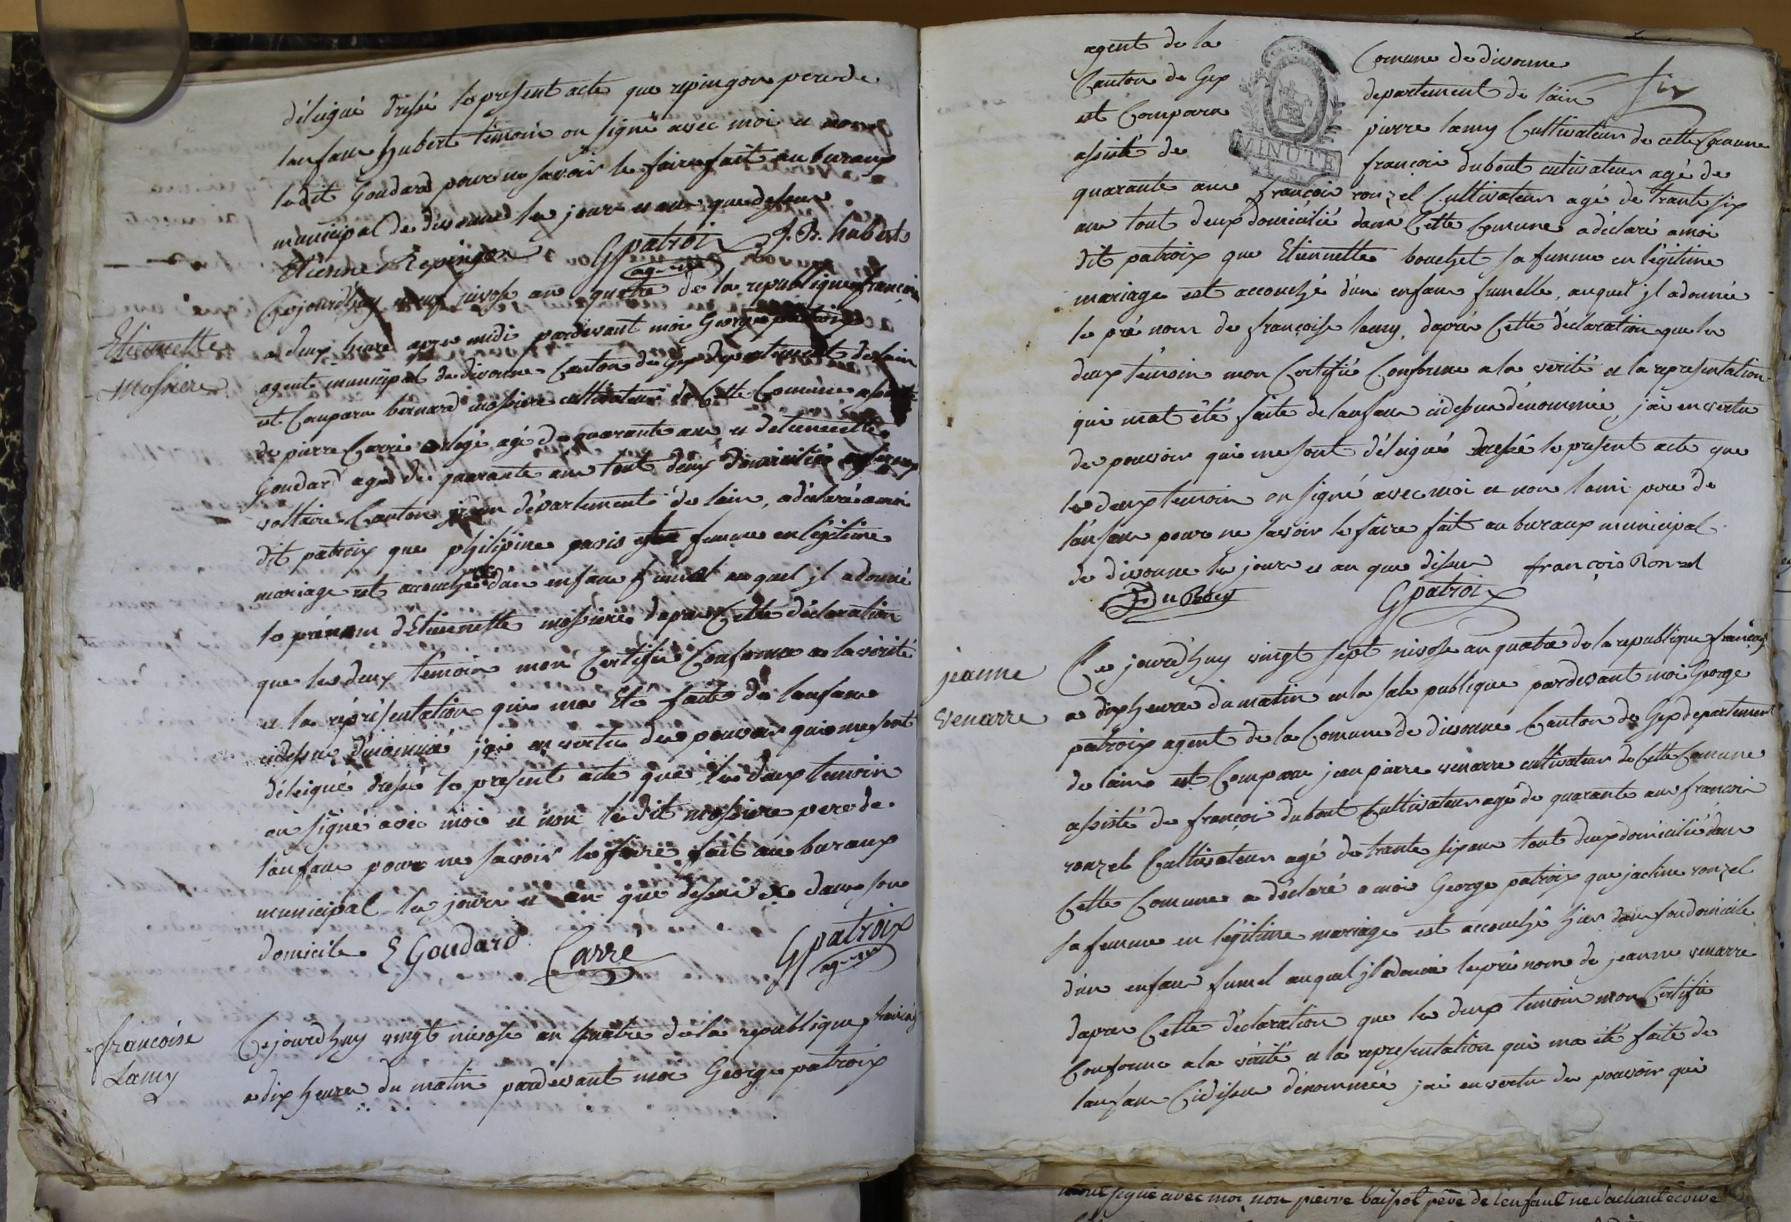 délégué dressé le present acte que repingon pere de
lanfans hubert temoin on signé avec moi et non
ledit Goudard pour ne savoir le faire fait au buraux
municipal de divonne les jour et an que desus
Etienne Repingon GPatroix J. Bt. hubert
agent
Etiennette
mossiere
Cejourdhuy neuf nivose an quatre de la republique françoise
a deux heure apres midi pardevant moi George patroix
agent municipal de divonne Canton de gex departement de lain
est Comparu bernard mossiere cultivateur de Cette Comune assisté
de pierre Carre orlogé agé de quarante ans et detiennette
Goudard agée de quarante ans tout deux domicilié a ferney
voltaire Canton departement de lain, a déclaré a moi
dit patroix que philipine pacis femme en légitime
mariage est accouchée d'un enfans fumel auquel jl a donné
le prénom d'Etiennette mossiere dapres Cette déclaration
que les deux temoin mon Certifié Conforme a la vérité
et la représentation qui ma été faite de lanfans
cidesus dénommé jai en vertu des pouvoir qui me sont
délégué dressé le present acte que les deux temoin
on signé avec moi et non le dit mossiere pere de
lanfans pour ne savoir le faire fait au buraux
municipal les jour et an que desus et dans son
domicile E Goudard Carre GPatroix
agent
françoise
Lamy
Cejourdhuy vingt nivose an quatre de la republique françois
a dix heure du matin pardevant moi George patroix
agent de la Comune de divonne
Canton de Gex departement de lain
est Comparu pierre lamy Cultivateur de cette Comune
assisté de françois dubout cutivateur agé de
MINUTE
quarante ans françois ronzel Cultivateur agé de trante six
ans tout deux domicilié dans Cette Comune a déclaré a moi
dit patroix que Etiennette bouchet sa femme en légitime
mariage est accouché dun enfans fumelle, auquel jl a donnée
le pré nom de françoise lamy, dapres Cette déclaration que les
deux temoin mon Certifié Conforme a la verité et la representation
qui mat été faite de lanfans cidesus dénommée, jai en vertu
des pouvoir qui me sont délégué dressé le present acte que
les deux temoin on signé avec moi et non lami pere de
lanfans pour ne savoir le faire fait au buraux municipal
de divonne les jour et an que desus françois Ronzel
Dubout GPatroix
jeanne
venarre
Cejourdhuy vingt sept nivose an quatre de la republique françois
a dix heures du matin en la sale publique pardevant moi George
patroix agent de la Comune de divonne Canton de Gex departement
de lain est Comparu jean pierre venarre cultivateur de Cette Comune
assisté de françois dubout Cultivateur agé de quarante ans françois
ronzel Cultivateur agé de trante six ans tout deux domicilié dans
Cette Comune a declaré a moi George patroix que jacline ronzel
sa femme en légitime mariage est accouché hier dans son domicile
d'un enfans fumel auquel jl a donné le pré nom de jeanne venarre
dapres Cette déclaration que les deux temoin mon Certifié
Conforme a la vérité et la representation qui ma été faite de
lanfans Cidesus dénommée jai en vertu des pouvoir qui
signé avec moi non pierre baispot père de l'enfant ne sachant écrire